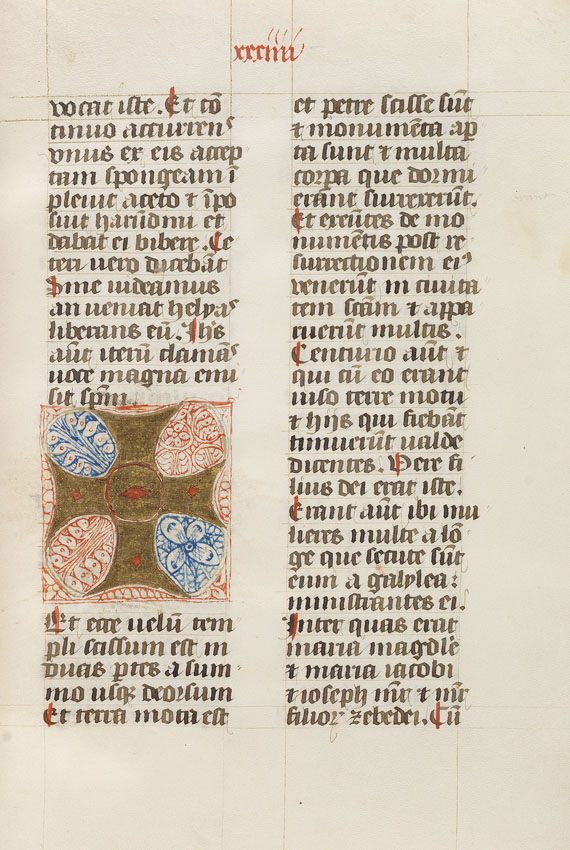 xxxiiii
vocat iste. Et cō
tinuo accurrens
vnus ex eis accep
tam spongeam ī
pleuit aceto & īpo
suit harūdini et
dabat ei bibere. Ce
teri uero dicebāt
Sine uideamus
an ueniat helyas
liberans eū. Ihs
aūt iterū clamās
uoce magna emi
sit spm̄.
Et ecce uelū tem
pli scissum est in
duas ꝑtes a sum
mo usqꝫ deorsum
Et terra mota est
et petre scisse sūt
& monumēta aꝑ
ta sunt & multa
corꝑa que dormi
erant surrexerūt.
Et exeūtes de mo
numētis post re
surrectionem eiꝰ
venerūt in ciuita
tem scām & appa
ruerūt multis.
Centurio aūt &
qui cū eo erant
uiso terre motu
& hiis qui fiebāt
timuerūt ualde
dicentes. Vere fi
lius dei erat iste.
Erant aūt ibi mu
lieres multe a lō
ge que secute sūt
eum a galylea:
ministrantes ei.
Inter quas erat
maria magdale
& maria iacobi
& ioseph mr̄ & mr̄
filioꝝ zebedei. Cū